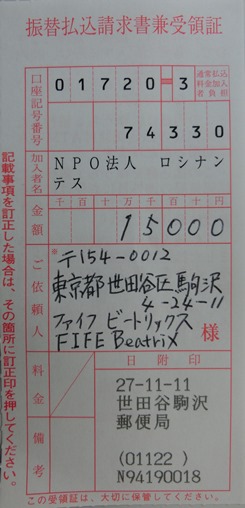 振替払込請求書兼受領証
口座記号番号
01720-3
通常払込料金加入者負担
74330
加入者名
NPO法人 ロシナン
テス
金額
千百十万千百十円
15000
ご依頼人
※
〒154-0012
東京都世田谷区駒沢
4-24-11
ファイフ ビートリックス
FIFE Beatrix
様
料金
日附印
27-11-11
世田谷駒沢
郵便局
(01122 )
N94190018
備考
この受領証は、大切に保管してください。
記載事項を訂正した場合は、その箇所に訂正印を押してください。